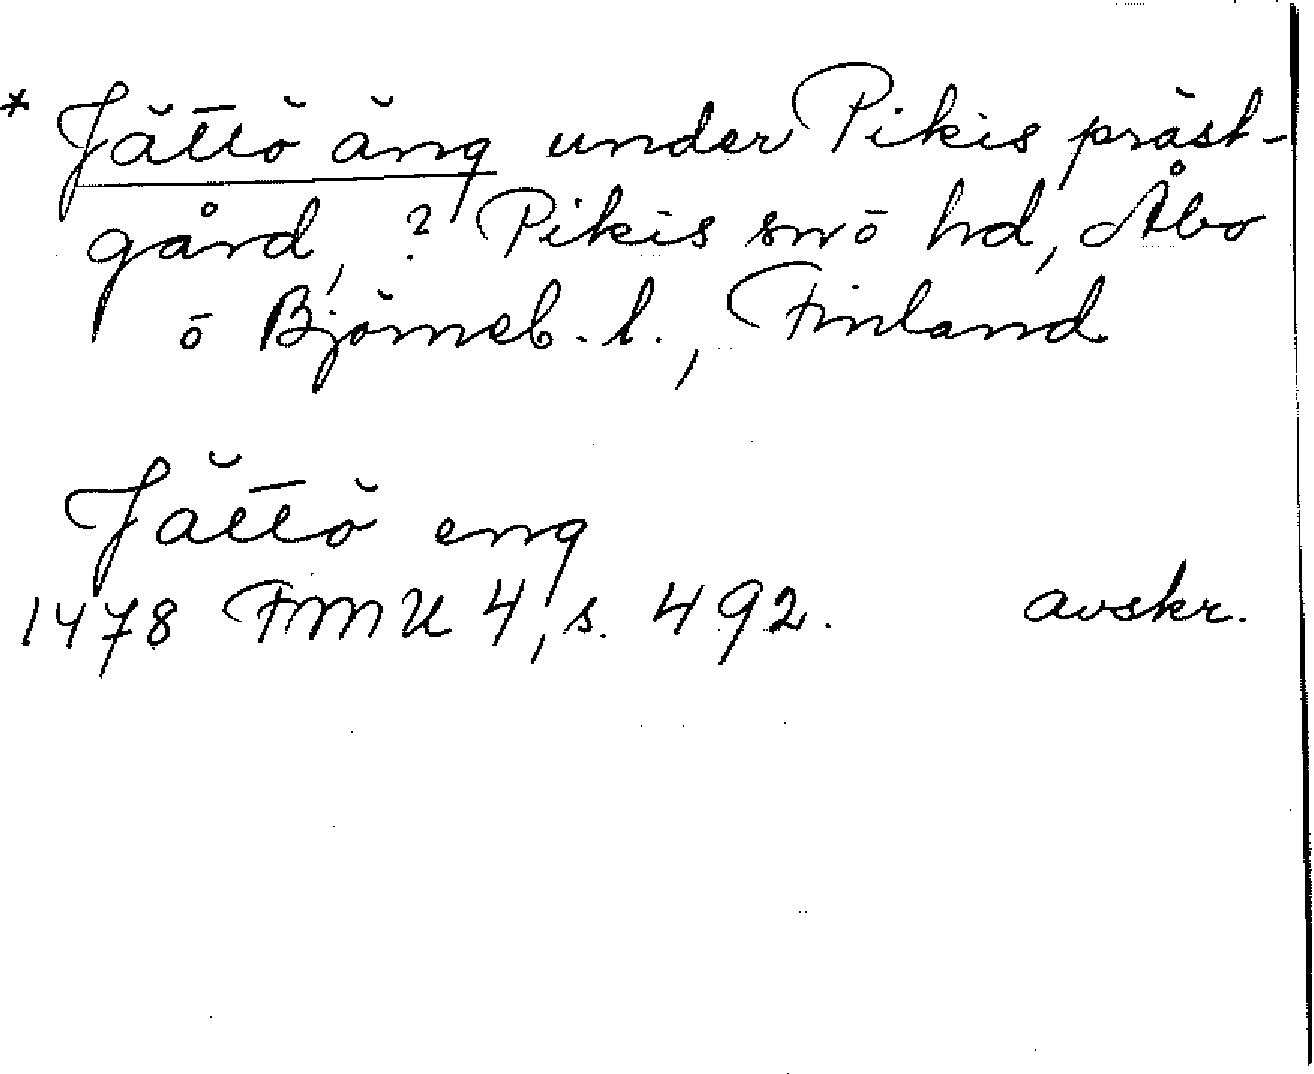 * Jättö äng under Pikis präst-
gård, ? Pikis sn o hd, Åbo
o Björneb. l., Finland
Jättö eng
1478 FMU 4, s. 492. avskr.